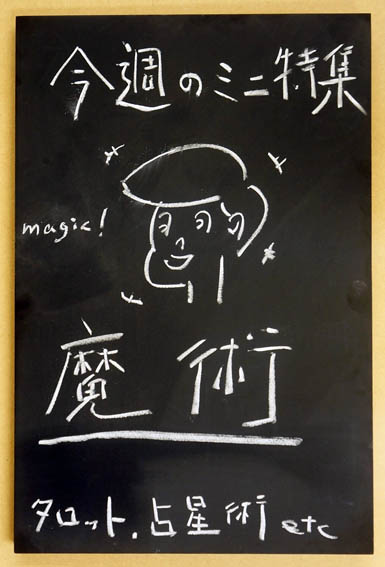 今週のミニ特集
magic!
魔術
タロット.占星術etc